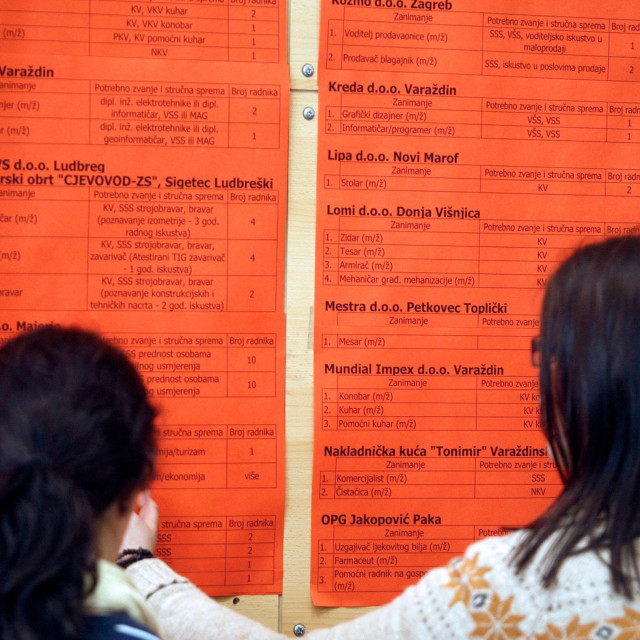 KV, VKV kuhar 2
KV, VKV konobar 1
(m/ž) PKV, KV pomoćni kuhar 1
NKV 1
Varaždin
Zanimanje Potrebno zvanje i stručna sprema Broj radnika
dipl. inž. elektrotehnike ili dipl.
(m/ž) 2
informatičar, VSS ili MAG
dipl. inž. elektrotehnike ili dipl.
(m/ž) 1
geoinformatičar, VSS ili MAG
d.o.o. Ludbreg
obrt "CJEVOVOD-ZS", Sigetec Ludbreški
Potrebno zvanje i stručna sprema Broj radnika
KV, SSS strojobravar, bravar
(m/ž) (poznavanje izometrije - 3 god. 4
radnog iskustva)
KV, SSS strojobravar, bravar,
(m/ž) zavarivač (Atestirani TIG zavarivač 4
- 1 god. iskustva)
KV, SSS strojobravar, bravar
bravar (poznavanje konstrukcijskih i 2
tehničkih nacrta - 2 god. iskustva)
zvanje i stručna sprema Broj radnika
SSS prednost osobama 10
usmjerenja
SSS prednost osobama 10
usmjerenja
i stručna sprema Broj radnika
1
više
stručna sprema Broj radnika
SSS 2
SSS 2
1
1
Kozmo d.o.o. Zagreb
Zanimanje Potrebno zvanje i stručna sprema Broj
1. Voditelj prodavaonice (m/ž) SSS, VŠS, voditeljsko iskustvo u 1
maloprodaji
2. Prodavač blagajnik (m/ž) SSS, iskustvo u poslovima prodaje 2
Kreda d.o.o. Varaždin
Zanimanje Potrebno zvanje i stručna sprema Broj
1. Grafički dizajner (m/ž) VŠS, VSS 1
2. Informatičar/programer (m/ž) VŠS, VSS 1
Lipa d.o.o. Novi Marof
Zanimanje Potrebno zvanje i stručna sprema Broj
1. Stolar (m/ž) KV 2
Lomi d.o.o. Donja Višnjica
Zanimanje Potrebno zvanje i stručna sprema Broj
1. Zidar (m/ž) KV
2. Tesar (m/ž) KV
3. Armirač (m/ž) KV
4. Mehaničar građ. mehanizacije (m/ž) KV
Mestra d.o.o. Petkovec Toplički
Zanimanje Potrebno zvanje
1. Mesar (m/ž)
Mundial Impex d.o.o. Varaždin
Zanimanje Potrebno zvanje
1. Konobar (m/ž) KV
2. Kuhar (m/ž) KV
3. Pomoćni kuhar (m/ž) KV
Nakladnička kuća "Tonimir" Varaždinske
Zanimanje Potrebno zvanje i
1. Komercijalist (m/ž) SSS
2. Čistačica (m/ž) NKV
OPG Jakopović Paka
Zanimanje
1. Uzgajivač ljekovitog bilja (m/ž)
2. Farmaceut (m/ž)
3. Pomoćni radnik na
(m/ž)